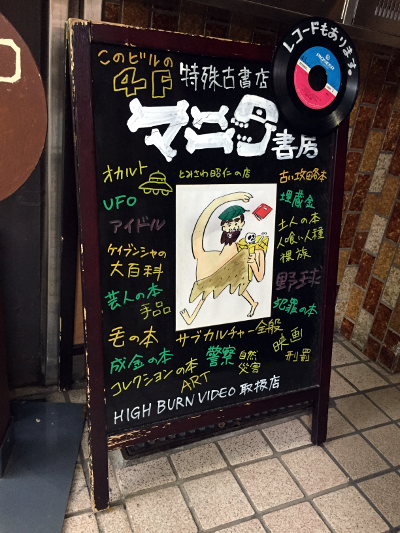 レコードもあります。
このビルの
4F
特殊古書店
マニタ書房
とみさわ昭仁の店
オカルト
UFO
アイドル
ケイブンシャの
大百科
芸人の本
手品
毛の本
成金の本
コレクションの本
古い攻略本
埋蔵金
土人の本
人喰い人種
裸族
野球
犯罪の本
サブカルチャー全般
映画
刑罰
警察
自然
災害
ART
HIGH BURN VIDEO 取扱店